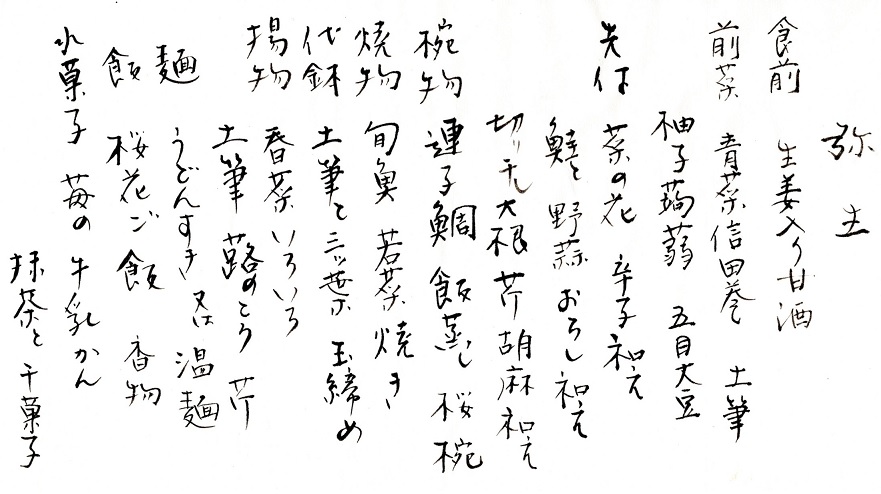 弥生
食前 生姜入り甘酒
前菜 青菜信田巻 土筆
柚子蒟蒻 五目大豆
先付 菜の花 辛子和え
鱚と野蒜おろし和え
切り干大根 芹胡麻和え
椀物 連子鯛 飯蒸し 桜椀
焼物 旬魚 若菜焼き
代鉢 土筆と三ッ葉 玉締め
揚物 春菜いろいろ
土筆 蕗のとう 芹
麺 うどんすき 又は 温麺
飯 桜花ご飯 香物
水菓子 苺の牛乳かん
抹茶と干菓子